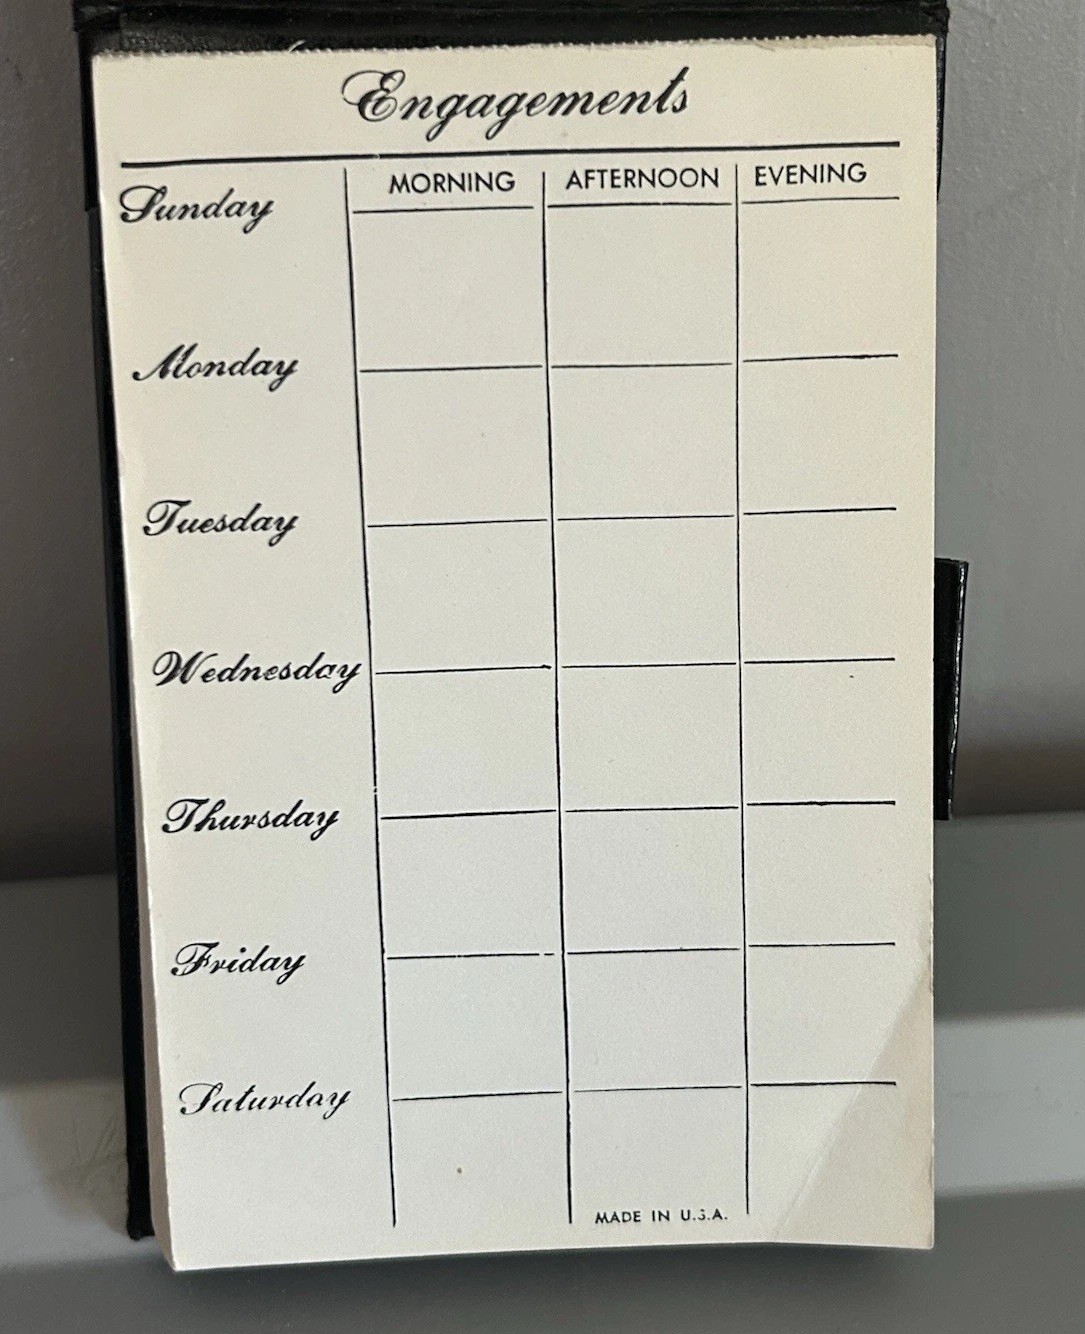 Engagements
MORNING AFTERNOON EVENING
Sunday
Monday
Tuesday
Wednesday
Thursday
Friday
Saturday
MADE IN U.S.A.